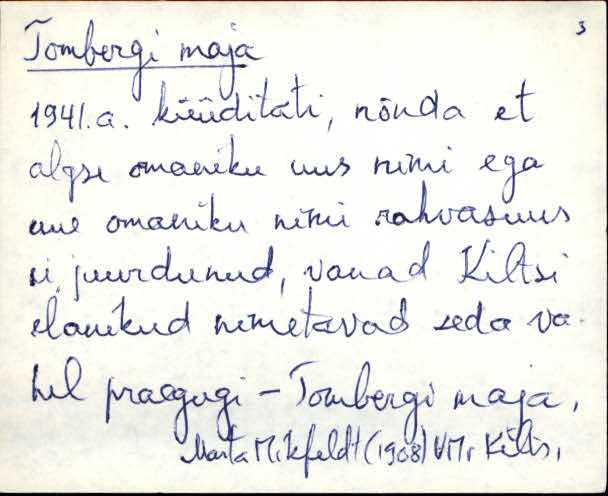 3
Tombergi maja
1941.a. küüditati, nõnda et
algse omaniku uus nimi ega
uue omaniku nimi rahvasuus
ei juurdunud, vanad Kiltsi
elanikud nimetavad seda va-
hel praegugi – Tombergi maja.
Marta Mikfeldt (1908) VMr Kilts.